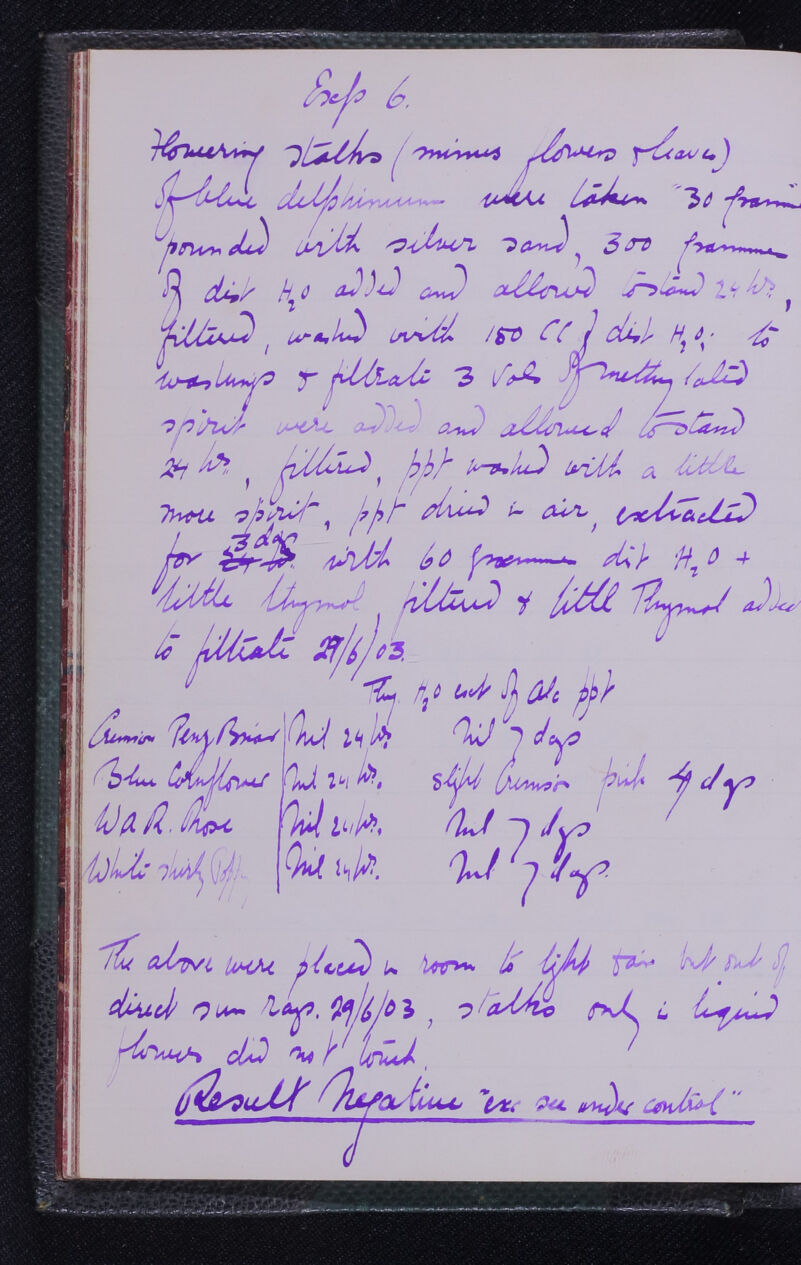 Exp 6.
Flowering stalks (minus flowers & leaves)
of blue delphinium were taken "30 gramme
pounded with silver sand, 300 grammes
of dist H2O added and allowed to stand 24 hrs,
filtered, washed with 150 CC of dist H2O; to
washings & filtrate 3 Vols of methylated
spirit were added and allowed to stand
24 hrs, filtered, ppt washed with a little
more spirit, ppt dried in air, extracted
for 3 days with 60 grammes dist H2O +
little thymol, filtered & little Thymol added
to filtrate 29/6/03.
Thy. H2O ext of Alc ppt
Crimson Penz Briar | Nil 24 hrs Nil 7 days
Blue Cornflower | Nil 24 hrs. slight Crimson pink 4 days
W A R. Rose | Nil 24 hrs. Nil 7 days
White Shirley Poppy | Nil 24 hrs. Nil 7 days.
The above were placed in room to light & air but out of
direct sun rays. 29/6/03, stalks only in liquid
flowers did not touch.
Result Negative "exc see under control"